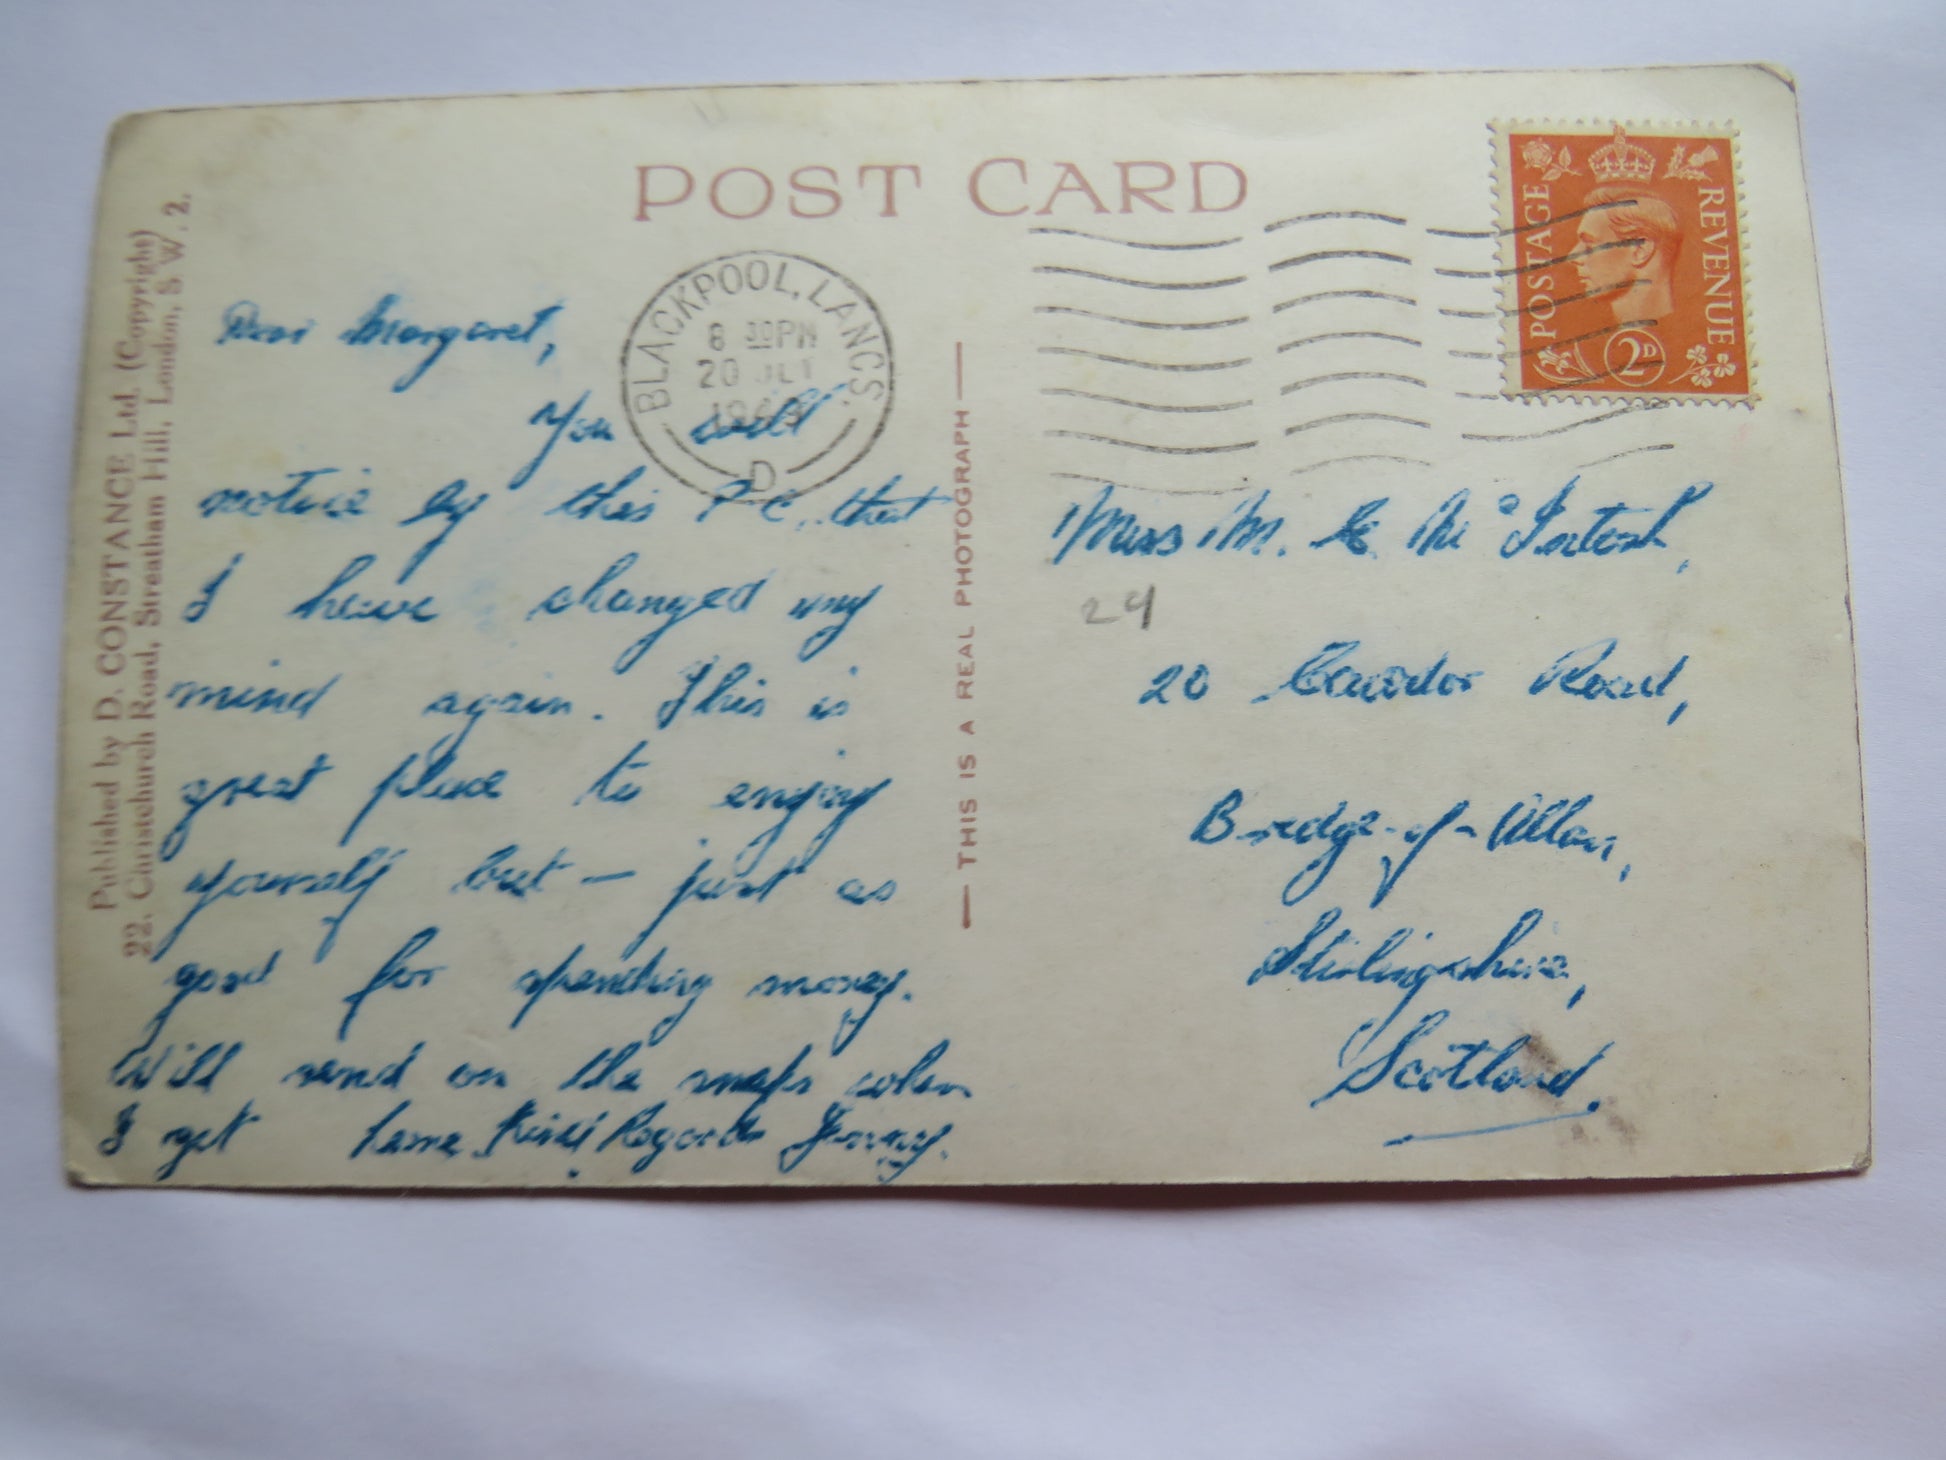 POST CARD
Published by D. CONSTANCE Ltd. (Copyright)
22. Christchurch Road, Streatham Hill, London, S.W.2.
BLACKPOOL, LANCS.
8 30PM
20 JLY
D
POSTAGE REVENUE
2D
Dear Margaret,
You will
notice by this P.C. that
I have changed my
mind again. This is
great place to enjoy
yourself but – just as
good for spending money.
Will send on the snaps when
I get home. Kind Regards
— THIS IS A REAL PHOTOGRAPH —
Miss M. Mc Intosh,
24
20 Cawdor Road,
Bridge-of-Allan,
Stirlingshire,
Scotland.